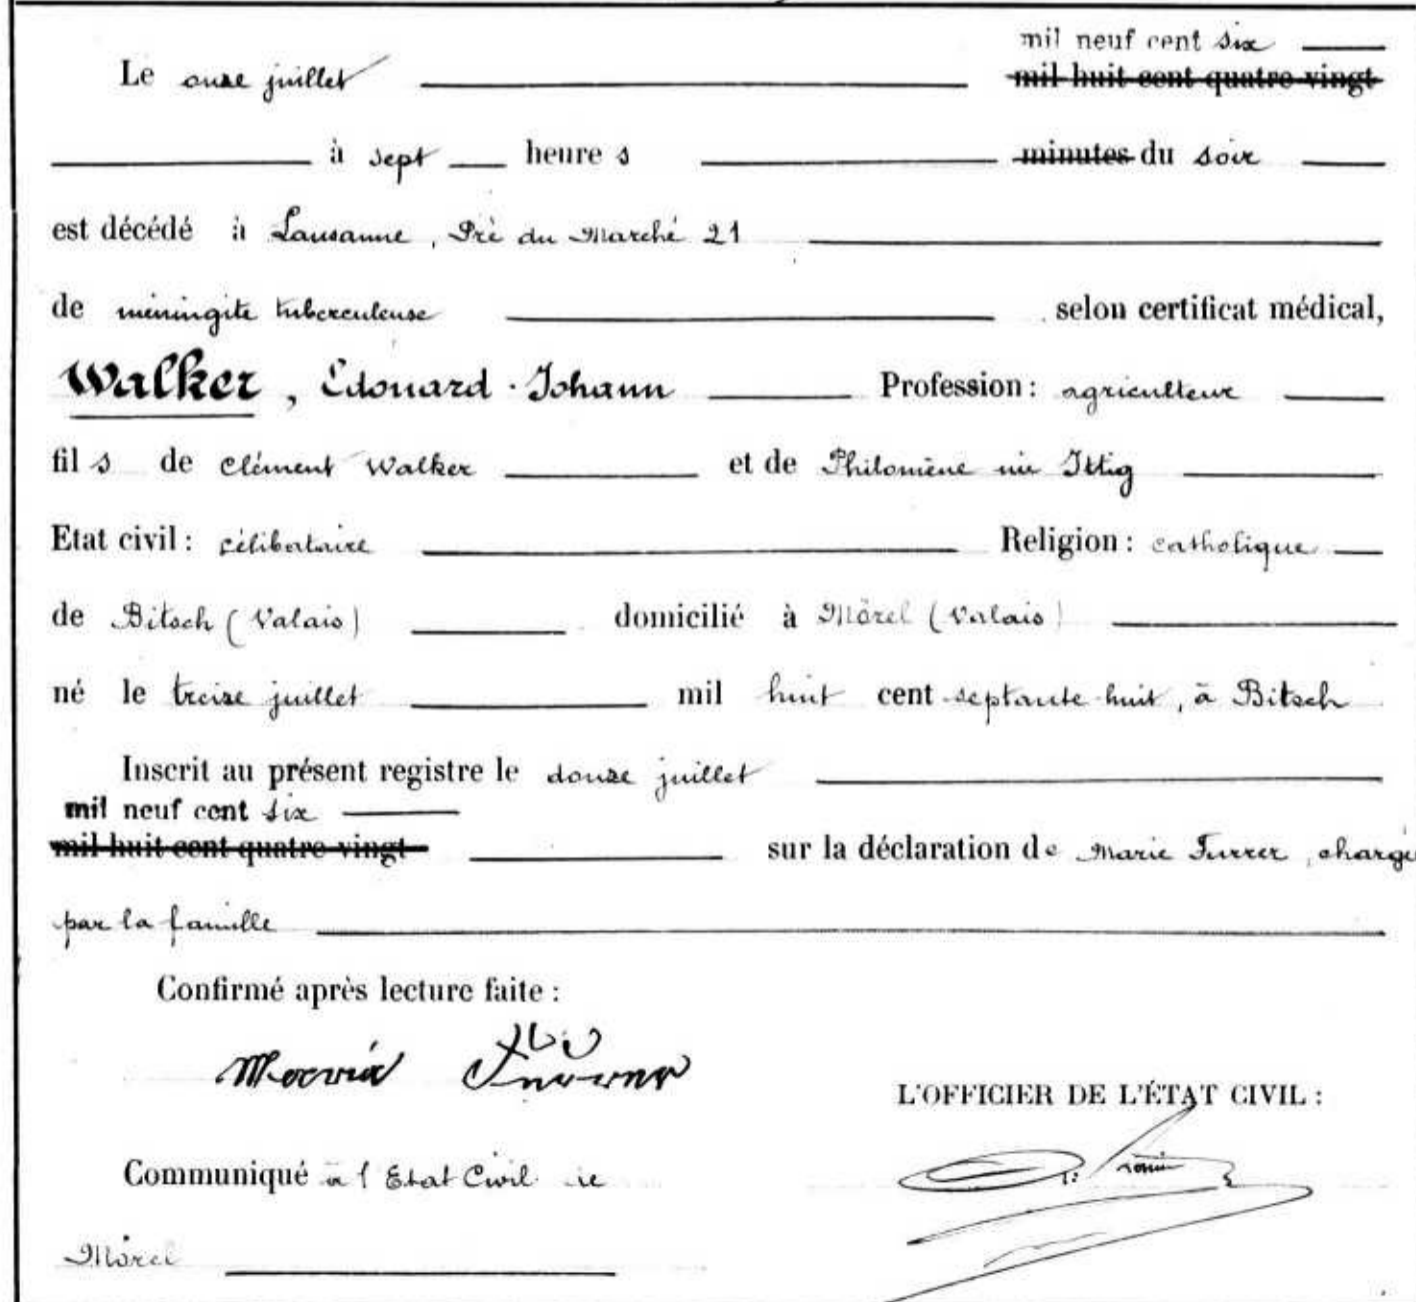 mil neuf cent six
Le onze juillet mil huit cent quatre-vingt
à sept heures minutes du soir
est décédé à Lausanne, Pré du Marché 21
de méningite tuberculeuse selon certificat médical,
Walker, Edouard-Johann Profession : agriculteur
fils de Clément Walker et de Philomène née Ittig
Etat civil : célibataire Religion : catholique
de Bitsch (Valais) domicilié à Mörel (Valais)
né le treize juillet mil huit cent septante-huit, à Bitsch
Inscrit au présent registre le douze juillet
mil neuf cent six
mil huit cent quatre-vingt sur la déclaration de Marie Furrer, chargée
par la famille
Confirmé après lecture faite :
Maria Furrer
L'OFFICIER DE L'ÉTAT CIVIL :
Communiqué à l'Etat Civil de
Mörel